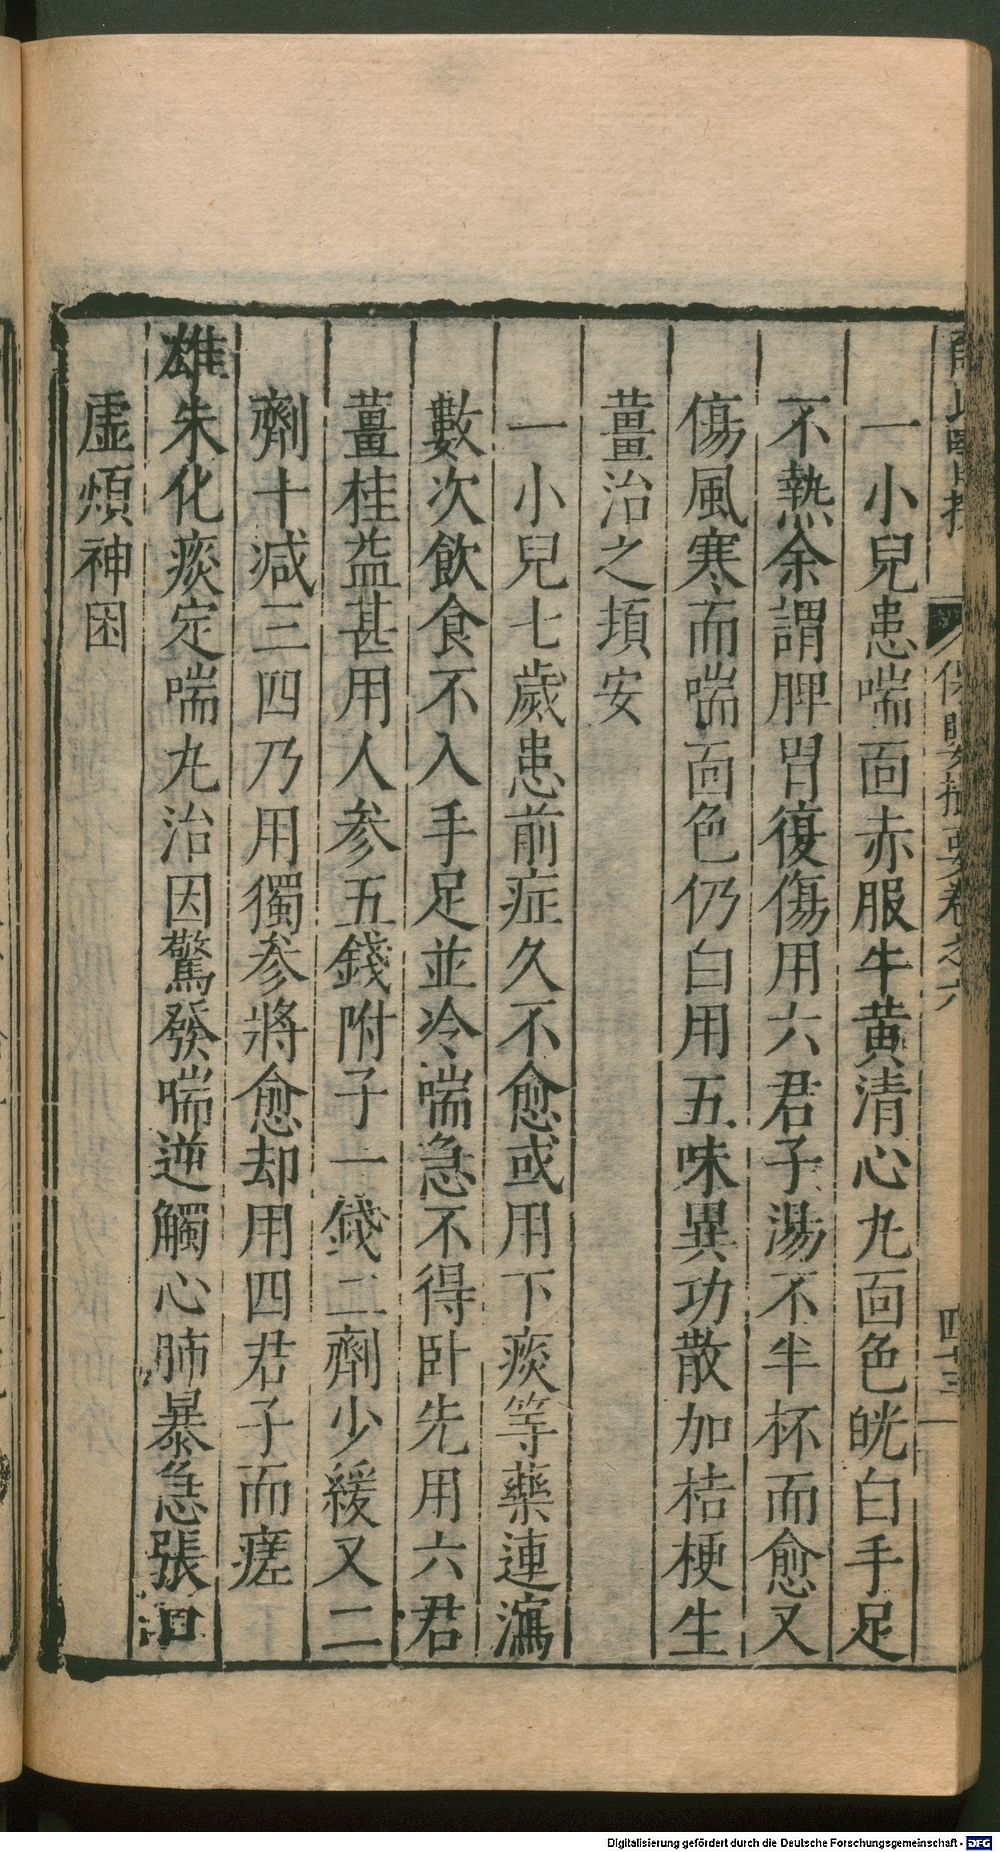 保嬰撮要卷之六
四十三
一小兒患喘面赤服牛黃清心丸面色㿠白手足
不熱余謂脾胃復傷用六君子湯不半杯而愈又
傷風寒而喘面色仍白用五味異功散加桔梗生
薑治之頃安
一小兒七歲患前症久不愈或用下痰等藥連瀉
數次飲食不入手足並冷喘急不得卧先用六君
薑桂益甚用人参五錢附子一錢二劑少緩又二
劑十减三四乃用獨參將愈却用四君子而瘥
雄朱化痰定喘丸治因驚發喘逆觸心肺暴急張口
虛煩神困
Digitalisierung gefördert durch die Deutsche Forschungsgemeinschaft - DFG